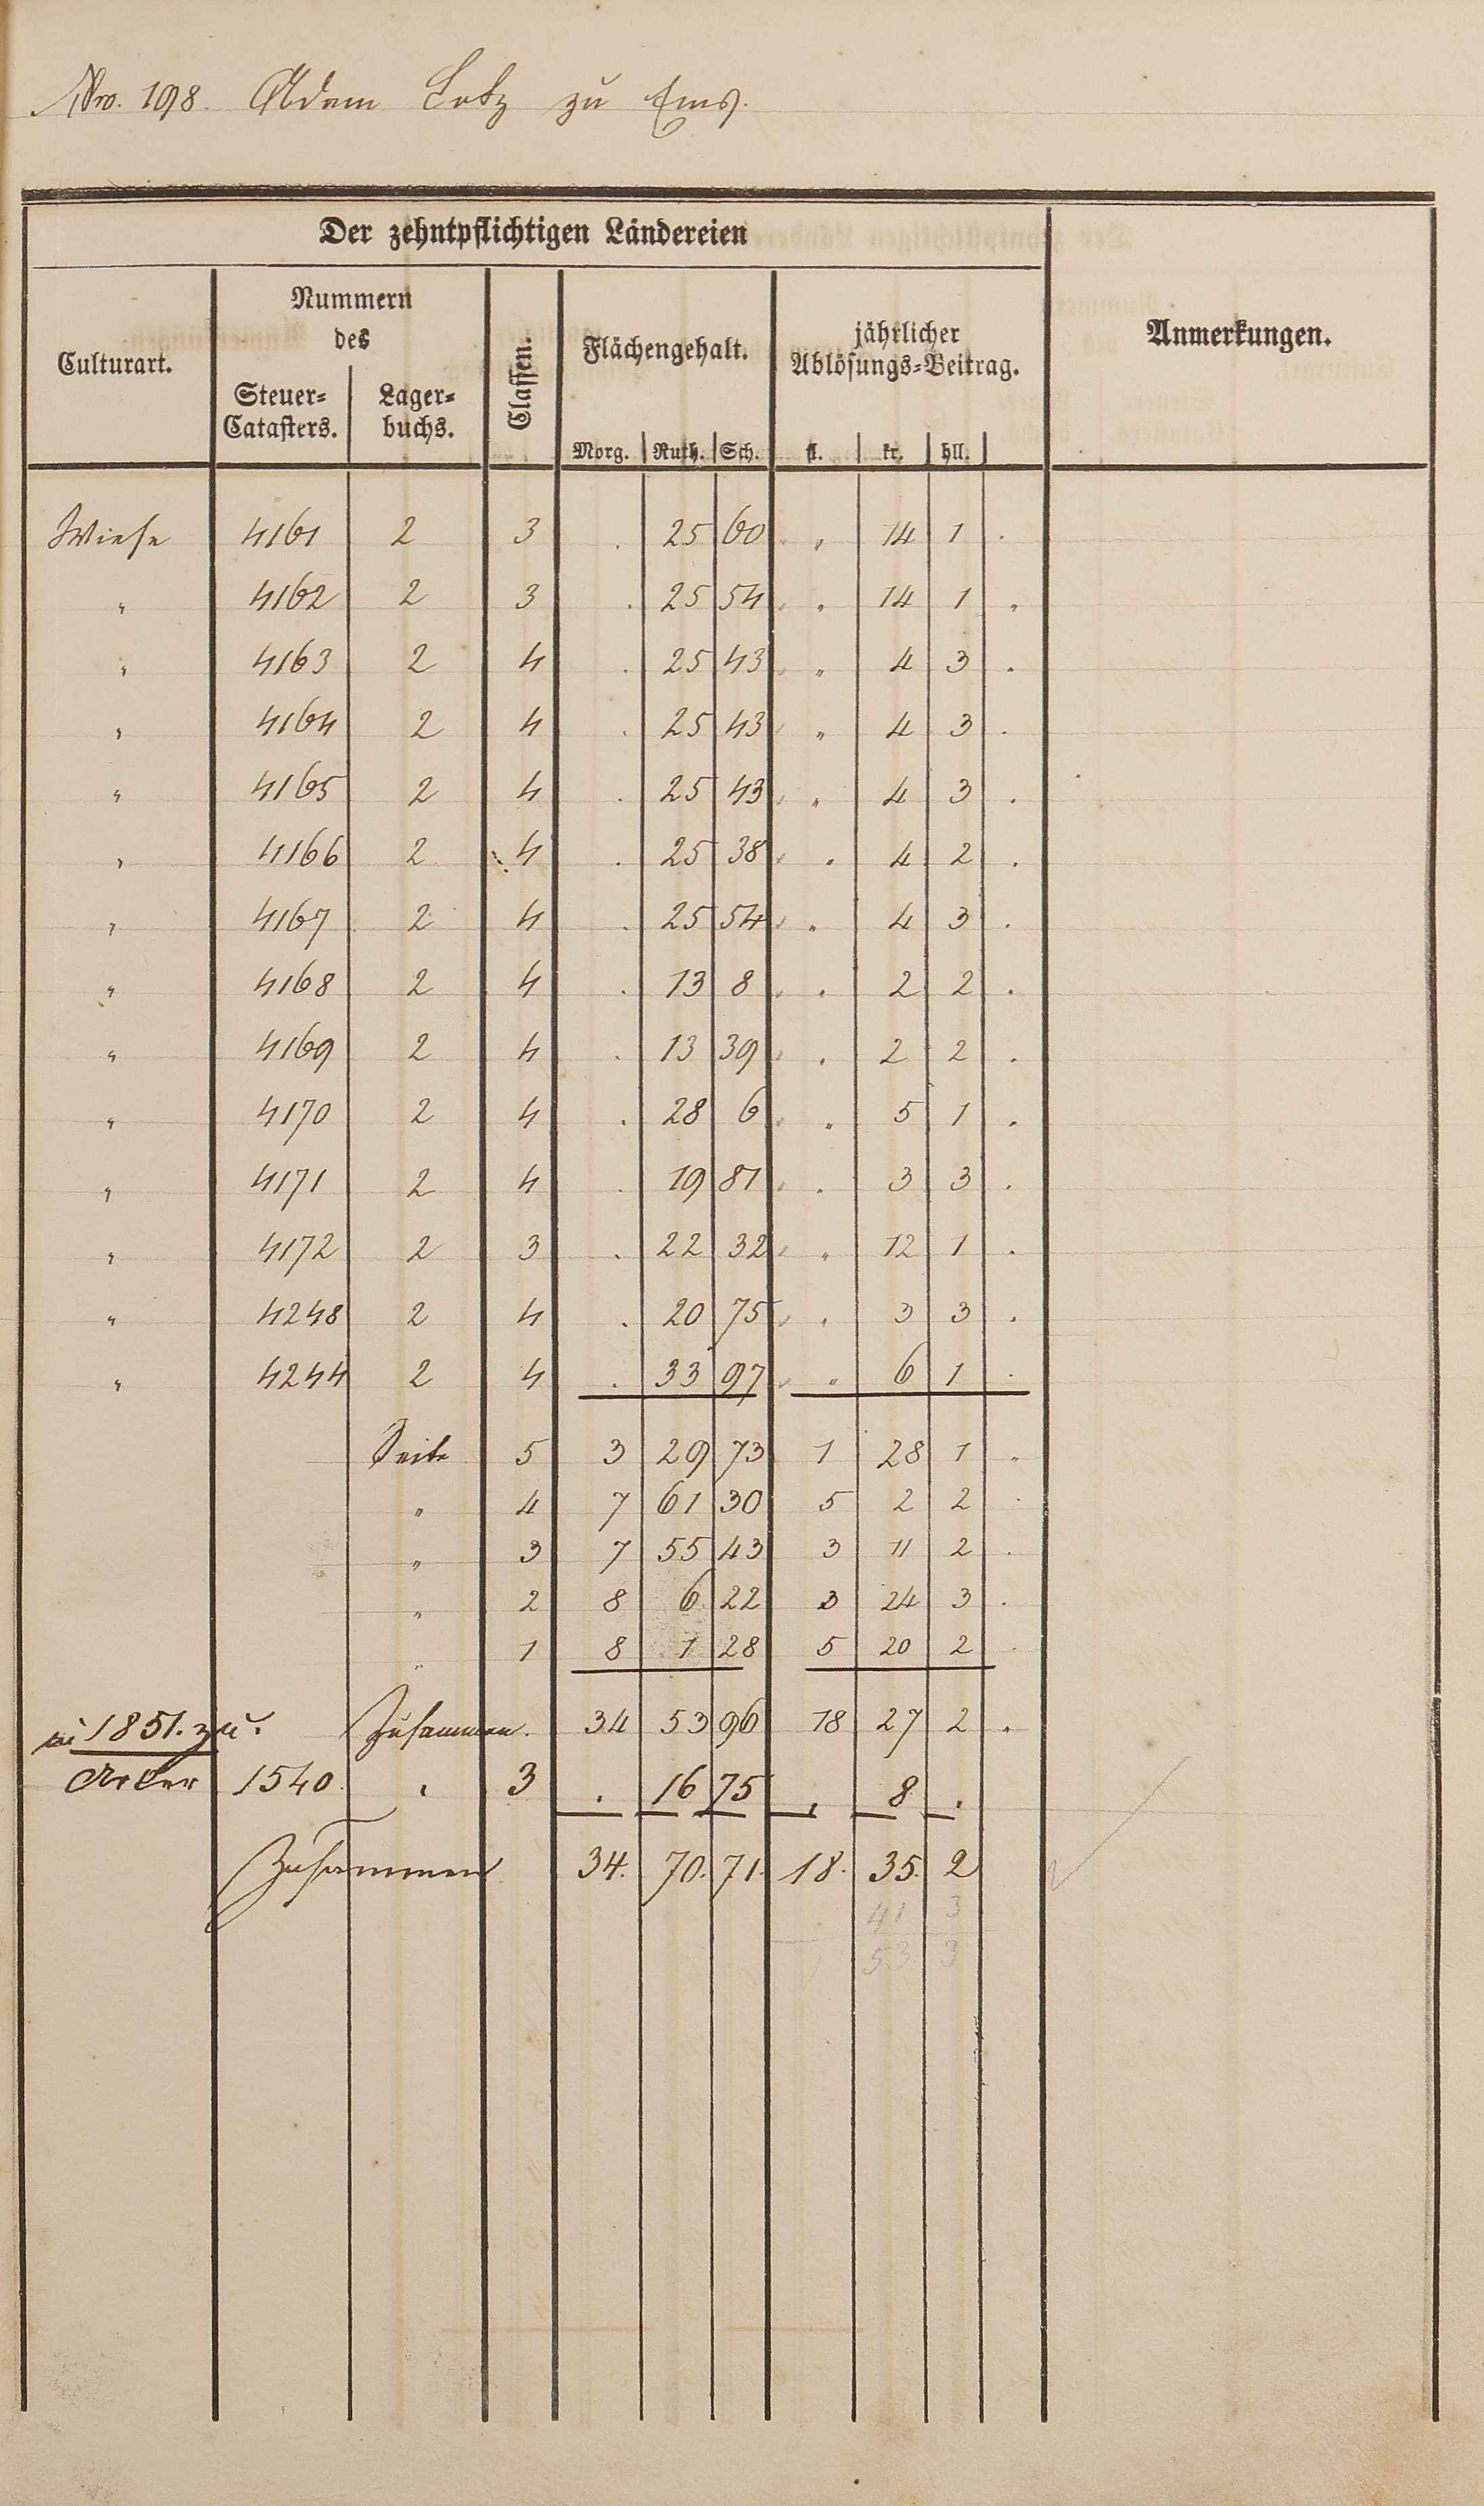 Nro. 198. Adam Lotz zu Ems.
Der zehntpflichtigen Ländereien
Culturart.
Nummern
des
Steuer=
Catasters.
Lager=
buchs.
Classen.
Flächengehalt.
Morg. Ruth. Sch.
jährlicher
Ablösungs=Beitrag.
fl. kr. hll.
Anmerkungen.
Wiese 4161 2 3 . 25 60 „ 14 1 .
„ 4162 2 3 . 25 54 „ 14 1 .
„ 4163 2 4 . 25 43 „ 4 3 .
„ 4164 2 4 . 25 43 „ 4 3 .
„ 4165 2 4 . 25 43 „ 4 3 .
„ 4166 2 4 . 25 38 „ 4 2 .
„ 4167 2 4 . 25 54 „ 4 3 .
„ 4168 2 4 . 13 8 „ 2 2 .
„ 4169 2 4 . 13 39 „ 2 2 .
„ 4170 2 4 . 28 6 „ 5 1 .
„ 4171 2 4 . 19 81 „ 3 3 .
„ 4172 2 3 . 22 32 „ 12 1 .
„ 4248 2 4 . 20 75 „ 3 3 .
„ 4244 2 4 . 33 97 „ 6 1 .
Seite 5 3 29 73 1 28 1 .
„ 4 7 61 30 5 2 2 .
„ 3 7 55 43 3 11 2 .
„ 2 8 6 22 3 24 3 .
„ 1 8 1 28 5 20 2 .
Zusammen. 34 53 96 18 27 2 .
in 1851. zu.
Acker 1540 . 3 . 16 75 . 8 .
Zusammen 34. 70. 71. 18. 35. 2
41 3
53 3